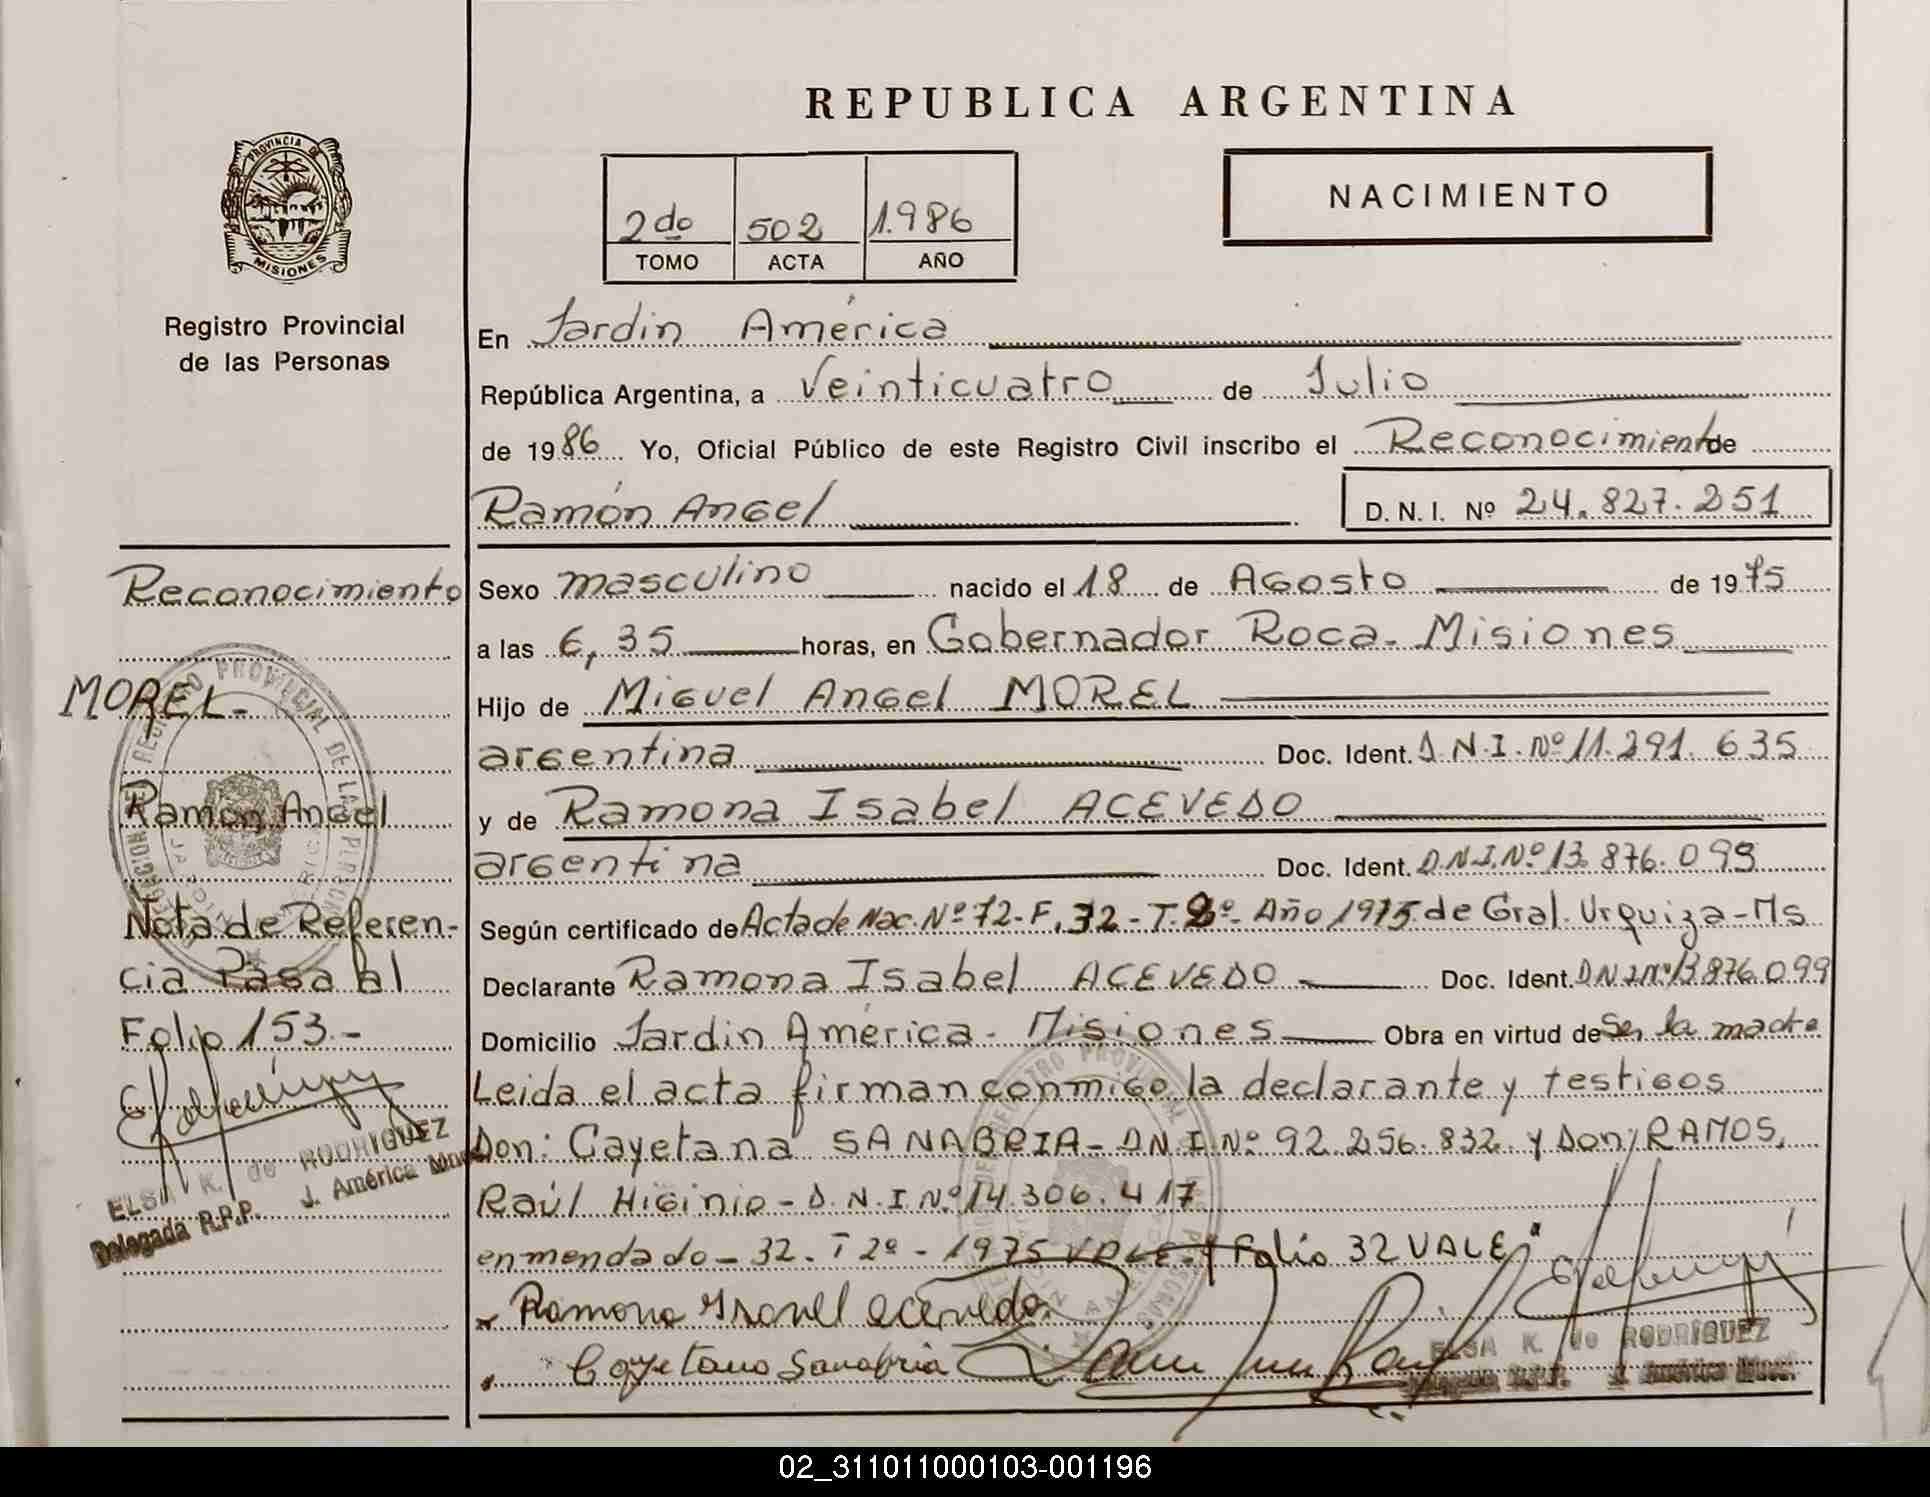 REPUBLICA ARGENTINA
PROVINCIA DE
MISIONES
Registro Provincial
de las Personas
2do 502 1.986
TOMO ACTA AÑO
NACIMIENTO
En Jardin América
República Argentina, a Veinticuatro de Julio
de 1986 Yo, Oficial Público de este Registro Civil inscribo el Reconocimiento de
Ramón Angel
D. N. I. Nº 24.827.251
Sexo masculino nacido el 18 de Agosto de 1975
a las 6,35 horas, en Gobernador Roca - Misiones
Hijo de Miguel Angel MOREL
argentina Doc. Ident. D.N.I. Nº 11.291.635
y de Ramona Isabel ACEVEDO
argentina Doc. Ident. D.N.I. Nº 13.876.099
Según certificado de Acta de Nac. Nº 72-F.32-T.2º- Año 1975 de Gral. Urquiza-Ms
Declarante Ramona Isabel ACEVEDO Doc. Ident. D.N.I. Nº 13.876.099
Domicilio Jardin América - Misiones Obra en virtud de Ser la madre
Leida el acta firman conmigo la declarante y testigos
Don: Cayetana SANABRIA - D.N.I. Nº 92.256.832 y Don; RAMOS,
Raúl Higinio - D.N.I. Nº 14.306.417
enmendado - 32. T 2º - 1975 VALE. "Folio 32 VALE"
Ramona Isavel acevedo
Cayetano Sanabria
ELSA K. de RODRIGUEZ
Reconocimiento
MOREL -
Ramón Angel
Nota de Referen-
cia Pasa al
Folio 153.-
ELSA K. de RODRIGUEZ
Delegada R.P.P. J. América
02_311011000103-001196